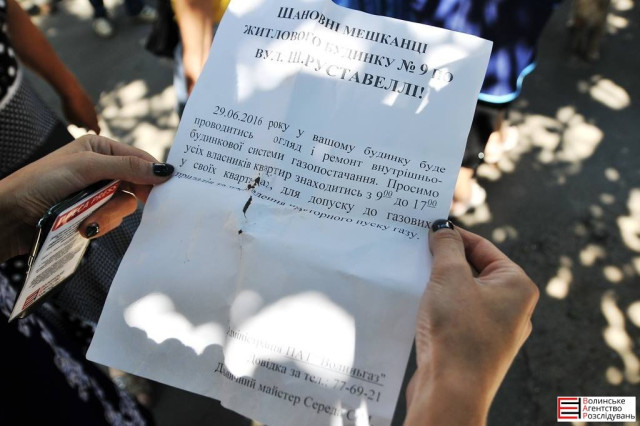 ШАНОВНІ МЕШКАНЦІ
ЖИТЛОВОГО БУДИНКУ № 9 ПО
ВУЛ. Ш.РУСТАВЕЛЛІ!
29.06.2016 року у вашому будинку буде
проводитись огляд і ремонт внутрішньо-
будинкової системи газопостачання. Просимо
усіх власників квартир знаходитись з 9⁰⁰ до 17⁰⁰
у своїх квартирах, для допуску до газових
приладів та проведення повторного пуску газу.
Адміністрація ПАТ "Волиньгаз"
Довідка за тел.: 77-69-21
майстер
Волинське
Агентство
Розслідувань